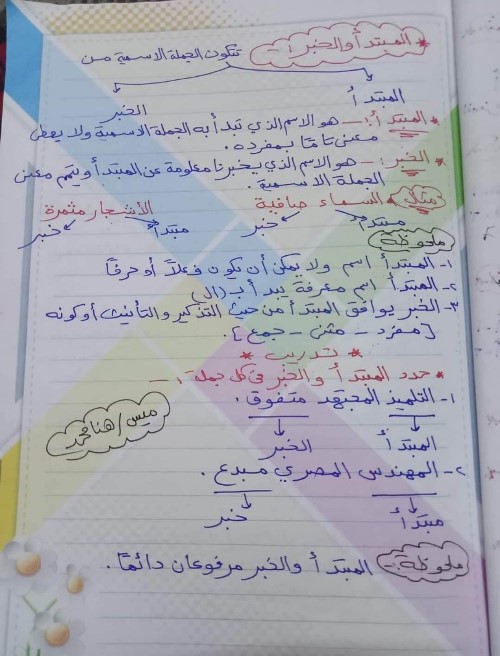 * المبتدأ والخبر :-
تتكون الجملة الاسمية من
المبتدأ
الخبر
* المبتدأ :- هو الاسم الذي تبدأ به الجملة الاسمية ولا يعطى
معنى تامًا بمفرده.
* الخبر :- هو الاسم الذي يخبرنا معلومة عن المبتدأ ويتمم معنى
الجملة الاسمية.
مثال * السماء صافية
الأشجار مثمرة
مبتدأ خبر
مبتدأ خبر
ملحوظة
١- المبتدأ اسم ولا يمكن أن يكون فعلًا أو حرفًا
٢- المبتدأ اسم معرفة يبدأ بـ (ال)
٣- الخبر يوافق المبتدأ من حيث التذكير والتأنيث أو كونه
[مفرد - مثنى - جمع].
* تدريب *
* حدد المبتدأ والخبر فى كل جملة :-
١- التلميذ المجتهد متفوق.
المبتدأ الخبر
ميس/هنا محمد
٢- المهندس المصري مبدع.
مبتدأ خبر
ملحوظة:- المبتدأ والخبر مرفوعان دائمًا.